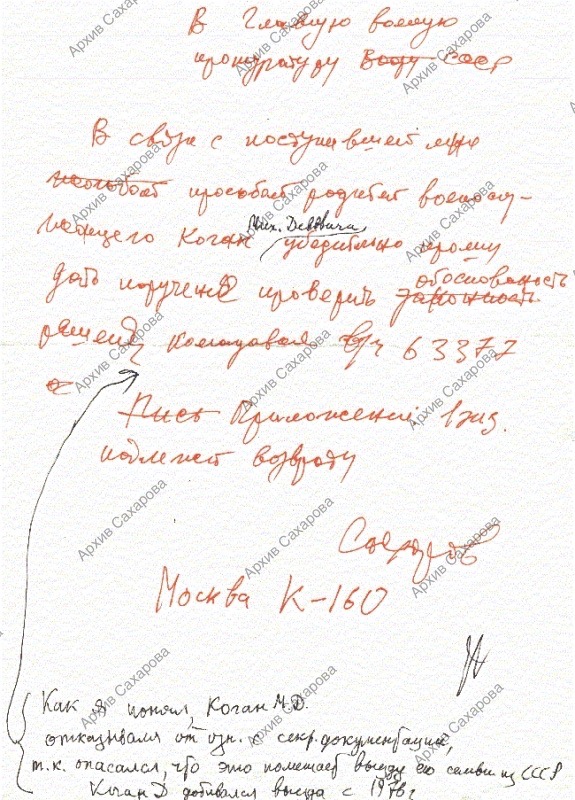 В Главную военную
прокуратуру Вооу СССР
В связи с поступившей мне
просьбой родителей военнослу-
жащего Коган Мих. Давыдовича убедительно прошу
дать поручение проверить законность обоснованность
решения командования в/ч 63377
Пись Приложений 1 экз.
подлежит возврату
Сахаров
Москва К-160
Как я понял, Коган М.Д.
отказывался от озн. с секр. документацией,
т.к. опасался, что это помешает выезду его семьи из СССР
Коган Д добивался выезда с 1978 г
Архив Сахарова